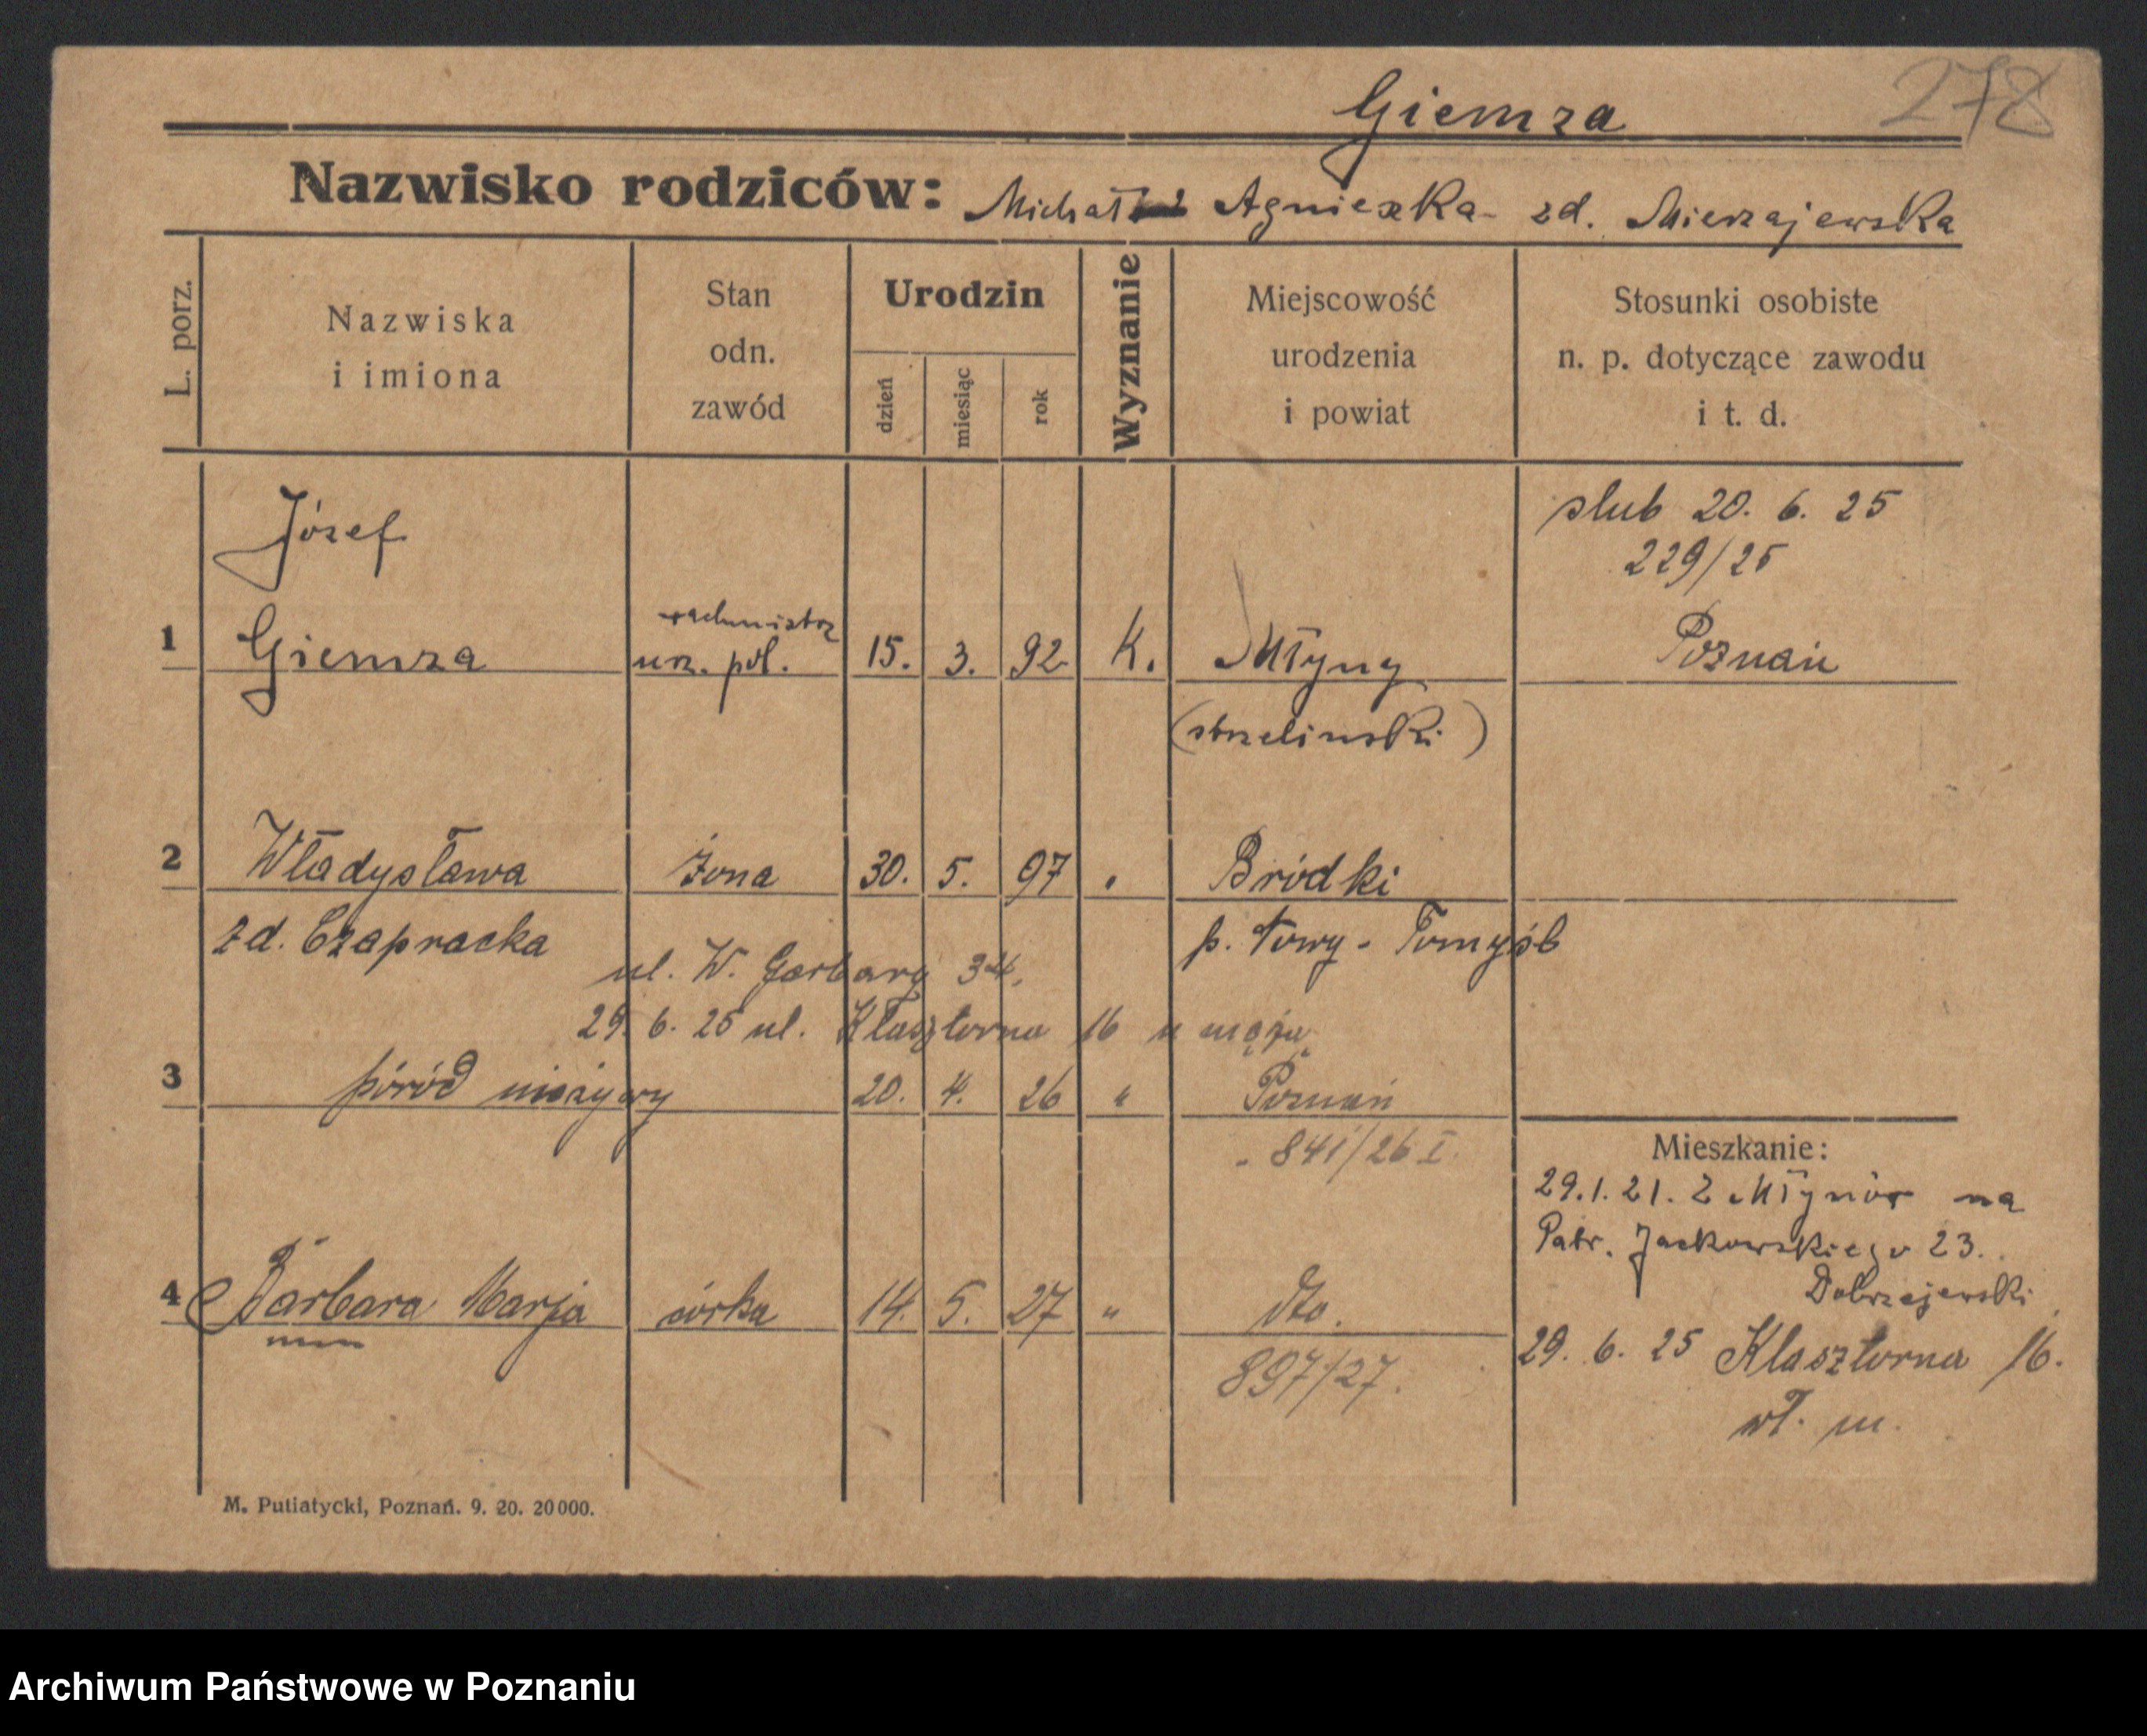 278
Giemza
Nazwisko rodziców: Michał i Agnieszka zd. Mierzajewska
L. porz.
Nazwiska
i imiona
Stan
odn.
zawód
Urodzin
dzień
miesiąc
rok
Wyznanie
Miejscowość
urodzenia
i powiat
Stosunki osobiste
n. p. dotyczące zawodu
i t. d.
Józef
ślub 20. 6. 25
229/25
rachmistrz
1 Giemza urz. pol. 15. 3. 92 K. Młyny Poznań
(strzelinski)
2 Władysława żona 30. 5. 97 " Bródki
zd. Czapracka p. Nowy-Tomyśl
ul. W. Garbary 34.
29. 6. 25 ul. Klasztorna 16 u męża
3 poród nieżywy 20. 4. 26 " Poznań
841/26 I.
Mieszkanie:
29.1.21. z Młynów na
Patr. Jackowskiego 23.
Dobrzejewski
4 Barbara Marja córka 14. 5. 27 " dto.
897/27.
29. 6. 25 Klasztorna 16.
wł. m.
M. Putiatycki, Poznań. 9. 20. 20000.
Archiwum Państwowe w Poznaniu